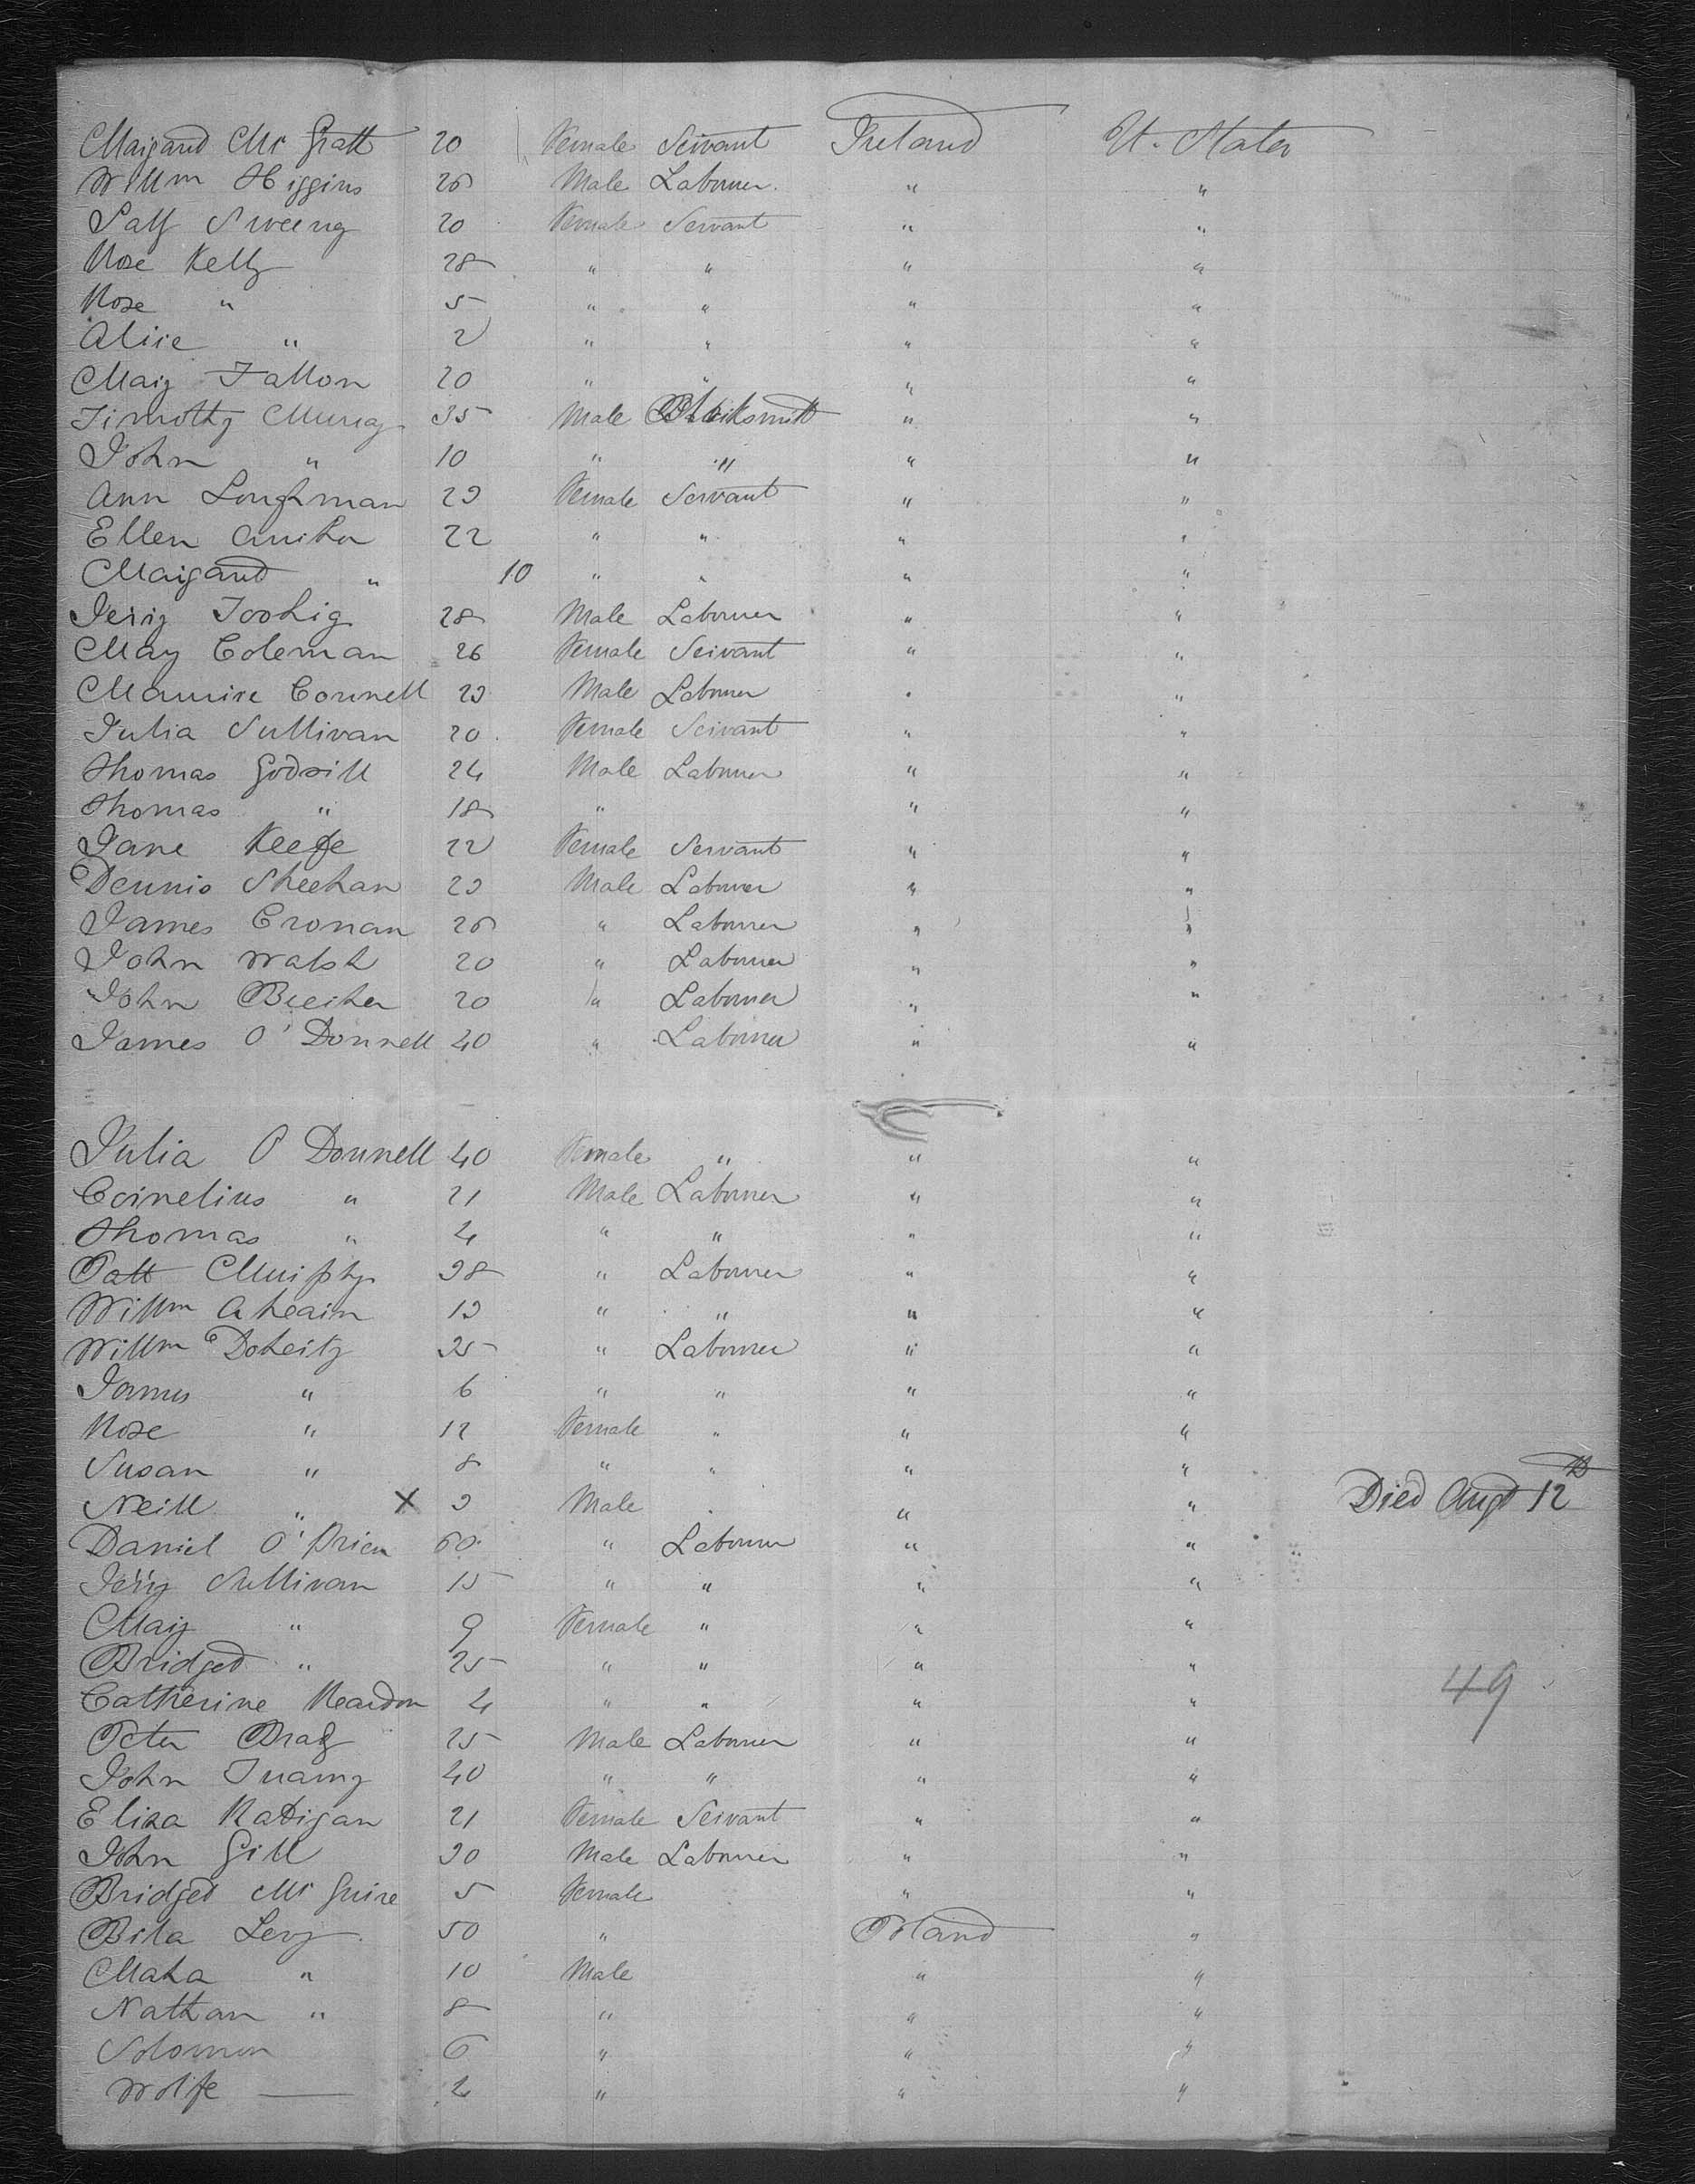 Margaret Mc Gratt 20 Female Servant Ireland U. States
Willm Higgins 26 Male Labourer " "
Patt Sweeny 20 Female Servant " "
Rose Kelly 28 " " " "
Rose " 5 " " " "
Alice " 2 " " " "
Mary Fallon 20 " " " "
Timothy Murray 35 Male Blacksmith " "
John " 10 " " " "
Ann Loughman 29 Female Servant " "
Ellen 22 " " " "
Margaret " 10 " " " "
Jerry Toohig 28 Male Labourer " "
Mary Coleman 26 Female Servant " "
Maurice Connell 29 Male Labourer " "
Julia Sullivan 20 Female Servant " "
Thomas Godsill 24 Male Labourer " "
Thomas " 18 " " "
Jane Keefe 22 Female Servant " "
Dennis Sheehan 29 Male Labourer " "
James Cronan 26 " Labourer " "
John Walsh 20 " Labourer " "
John 20 " Labourer " "
James O'Donnell 40 " Labourer " "
Julia O Donnell 40 Female " " "
Cornelius " 21 Male Labourer " "
Thomas " 4 " " " "
Patt Murphy 38 " Labourer " "
Willm Ahearn 19 " " " "
Willm Doherty 35 " Labourer " "
James " 6 " " " "
Rose " 12 Female " " "
Susan " 8 " " " "
Neill " X 9 Male " " Died Augt 12th
Daniel O'Brien 60 " Labourer " "
Jerry Sullivan 15 " " " "
Mary " 9 Female " " "
Bridged " 25 " " " "
Catherine Reardon 4 " " " " 49
Peter Brady 25 Male Labourer " "
John 40 " " " "
Eliza Radigan 21 Female Servant " "
John Gill 30 Male Labourer " "
Bridged Mc Guire 5 Female " "
Bila Levy 50 " Poland "
Maha " 10 Male " "
Nathan " 8 " " "
Solomon 6 " " "
Wolfe — 2 " " "